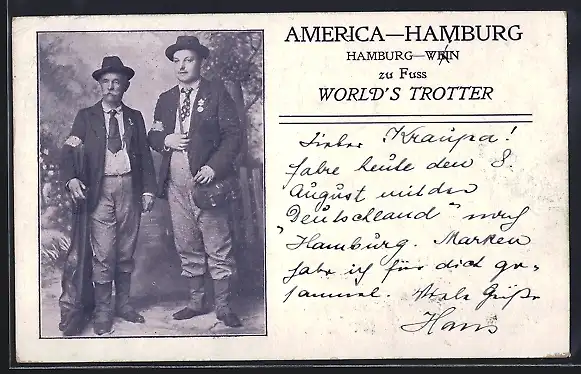 AMERICA—HAMBURG
HAMBURG—WIEN
zu Fuss
WORLD'S TROTTER
Lieber Kraupa!
fahre heute den 8.
August mit der
"Deutschland" nach
Hamburg. Marken
habe ich für dich ge-
sammel. Viele Grüße
Hans